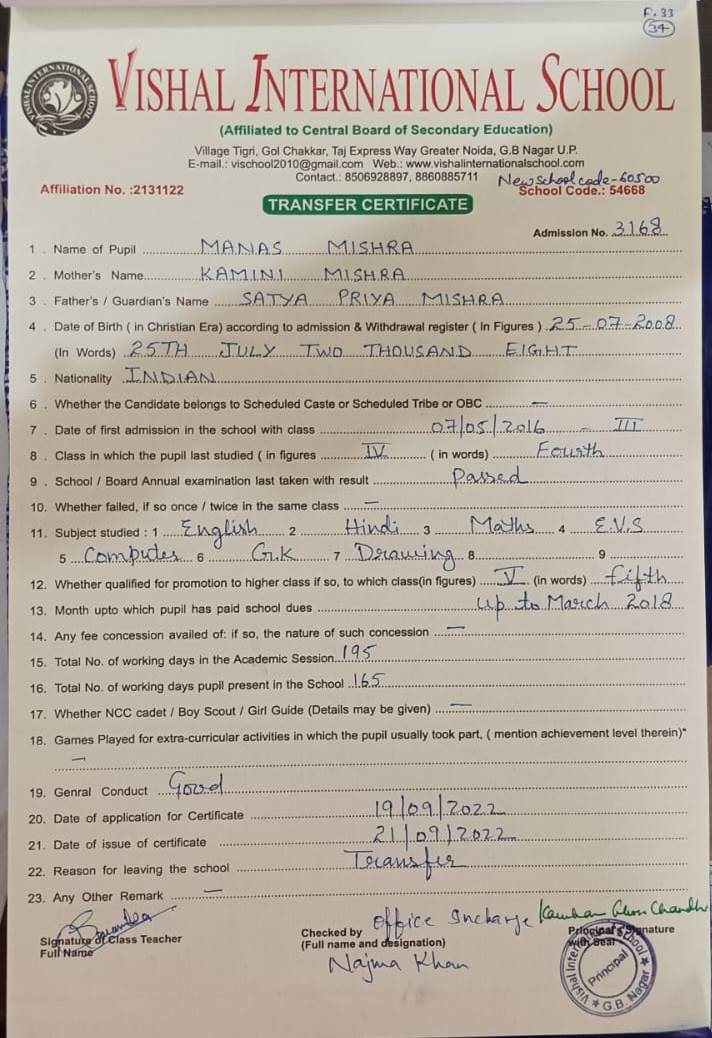 P. 33
34
VISHAL INTERNATIONAL SCHOOL
(Affiliated to Central Board of Secondary Education)
Village Tigri, Gol Chakkar, Taj Express Way Greater Noida, G.B Nagar U.P.
E-mail.: vischool2010@gmail.com Web.: www.vishalinternationalschool.com
Contact.: 8506928897, 8860885711 New School code-60500
Affiliation No. :2131122 School Code.: 54668
TRANSFER CERTIFICATE
Admission No. 3168
1 . Name of Pupil MANAS MISHRA
2 . Mother's Name KAMINI MISHRA
3 . Father's / Guardian's Name SATYA PRIYA MISHRA
4 . Date of Birth ( in Christian Era) according to admission & Withdrawal register ( In Figures ) 25-07-2008
(In Words) 25TH JULY TWO THOUSAND EIGHT
5 . Nationality INDIAN
6 . Whether the Candidate belongs to Scheduled Caste or Scheduled Tribe or OBC —
7 . Date of first admission in the school with class 07/05/2016 - III
8 . Class in which the pupil last studied ( in figures IV ( in words) Fourth
9 . School / Board Annual examination last taken with result Passed
10. Whether failed, if so once / twice in the same class —
11. Subject studied : 1 English 2 Hindi 3 Maths 4 E.V.S
5 Computer 6 G.K 7 Drawing 8 9
12. Whether qualified for promotion to higher class if so, to which class(in figures) V (in words) fifth
13. Month upto which pupil has paid school dues up to March 2018
14. Any fee concession availed of: if so, the nature of such concession —
15. Total No. of working days in the Academic Session 195
16. Total No. of working days pupil present in the School 165
17. Whether NCC cadet / Boy Scout / Girl Guide (Details may be given) —
18. Games Played for extra-curricular activities in which the pupil usually took part, ( mention achievement level therein)*
—
19. Genral Conduct Good
20. Date of application for Certificate 19/09/2022
21. Date of issue of certificate 21/09/2022
22. Reason for leaving the school Transfer
23. Any Other Remark —
Signature of Class Teacher
Full Name
Checked by Office Incharge
(Full name and designation)
Najma Khan
Principal's Signature
with Seal
Principal
G.B. Nagar